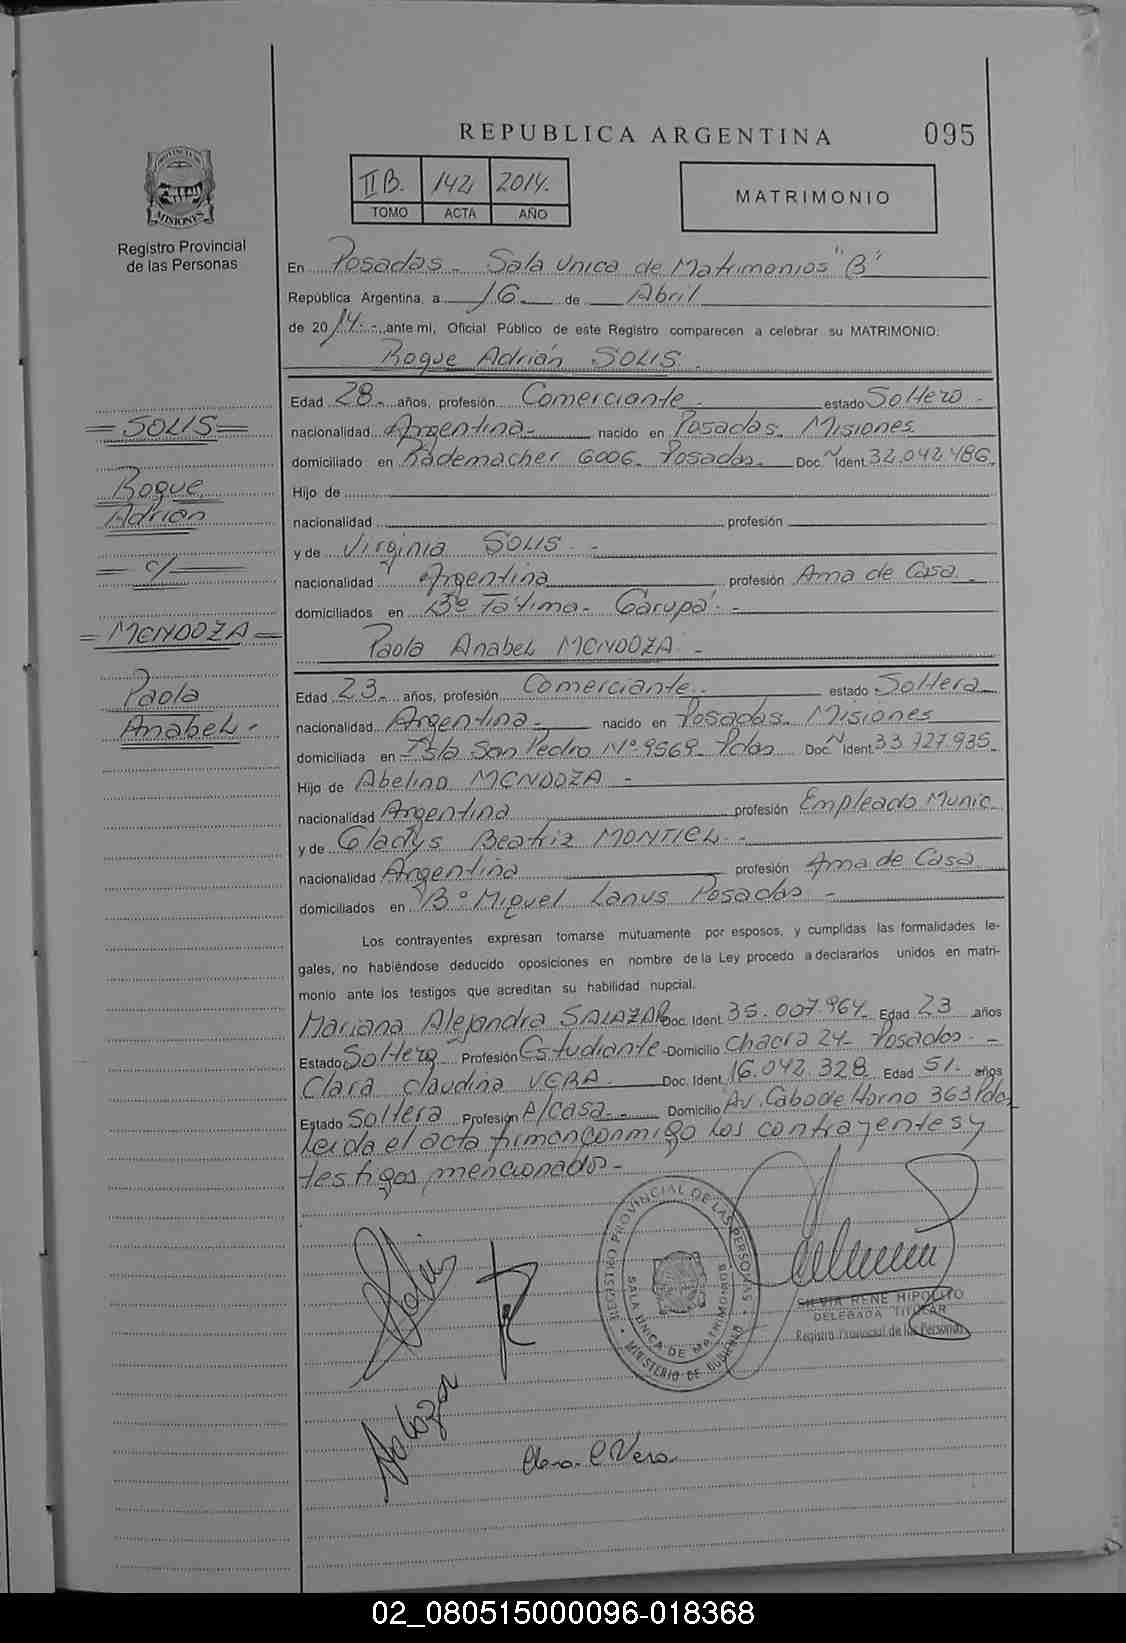 REPUBLICA ARGENTINA 095
II B. 142 2014.
TOMO ACTA AÑO
MATRIMONIO
PROVINCIA DE MISIONES
Registro Provincial
de las Personas
En Posadas - Sala Unica de Matrimonios "B"
República Argentina, a 16 de Abril
de 2014.- ante mi, Oficial Público de este Registro comparecen a celebrar su MATRIMONIO:
Roque Adrián SOLIS.
Edad 28- años, profesión Comerciante. estado Soltero -
=SOLIS= nacionalidad Argentina- nacido en Posadas. Misiones
domiciliado en Rademacher 6006- Posadas- Doc. N Ident. 32.042.486.
Roque Hijo de
Adrián nacionalidad profesión
y de Virginia SOLIS. -
= c/ = nacionalidad Argentina profesión Ama de Casa. -
domiciliados en Bº Fátima- Garupá. -
=MENDOZA= Paola Anabel MENDOZA. -
Paola Edad 23- años, profesión Comerciante. estado Soltera
Anabel- nacionalidad Argentina- nacido en Posadas. Misiones
domiciliada en Isla San Pedro Nº 9569- Pdas Doc. N Ident. 33.727.935-
Hija de Abelino MENDOZA -
nacionalidad Argentina profesión Empleado Munic.
y de Gladys Beatriz MONTIEL. -
nacionalidad Argentina profesión Ama de Casa
domiciliados en Bº Miguel Lanus Posadas -
Los contrayentes expresan tomarse mutuamente por esposos, y cumplidas las formalidades le-
gales, no habiéndose deducido oposiciones en nombre de la Ley procedo a declararlos unidos en matri-
monio ante los testigos que acreditan su habilidad nupcial.
Mariana Alejandra SALAZAR Doc. Ident. 35.007.964- Edad 23 años
Estado Soltera Profesión Estudiante- Domicilio Chacra 24- Posadas. -
Clara Claudina VERA. Doc. Ident. 16.042.328 Edad 51- años
Estado Soltera Profesión A/casa.- Domicilio Av. Cabo de Horno 363 Pdas
Leida el acta firman conmigo los contrayentes y
testigos mencionados-
Solis
REGISTRO PROVINCIAL DE LAS PERSONAS
SALA UNICA DE MATRIMONIOS
MINISTERIO DE GOBIERNO
SILVIA RENE HIPOLITO
DELEGADA TITULAR
Registro Provincial de las Personas
Salazar
Clara C Vera
02_080515000096-018368